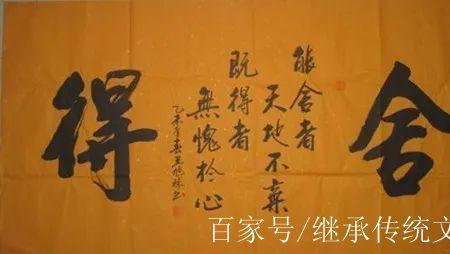 舍
能舍者
天地不棄
既得者
無愧於心
乙未年春王林书
得
百家号/继承传统文